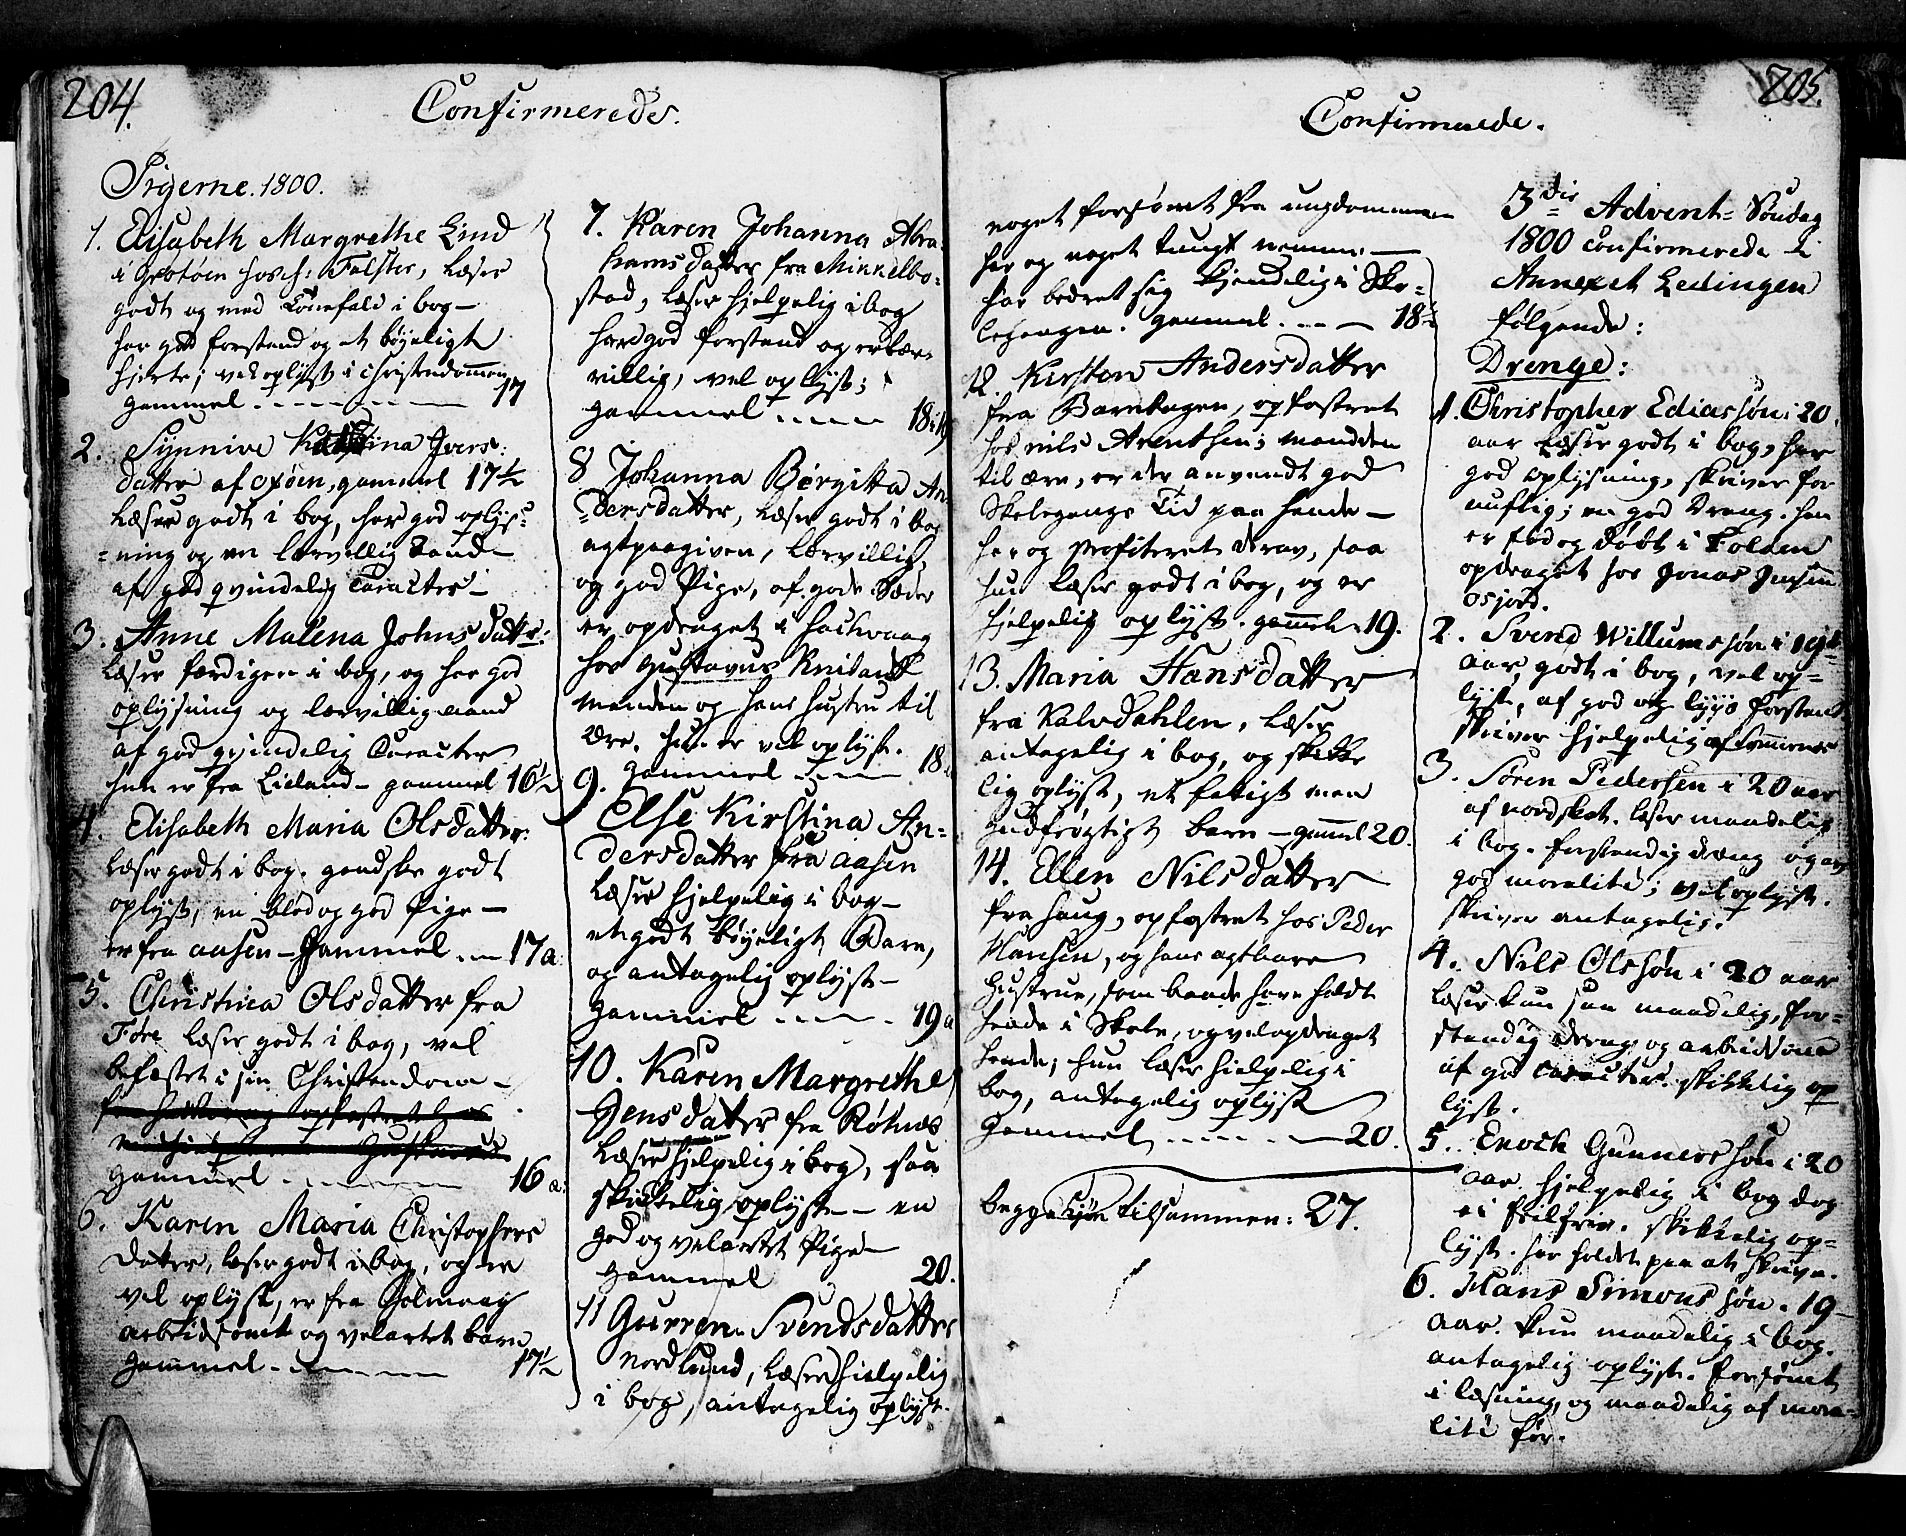 204.
Confirmerede.
Pigerne. 1800.
1. Elisabeth Margrethe Lind
i Grøtøen hos h: Falster, læser
godt og med Tonefald i bog –
har god forstand og et bøyeligt
hierte; vel oplyst i christendommen
gammel 17
2. Synnive Ivers:
datter af oxøen, gammel 17½
læser godt i bog, har god oplys-
-ning og en lærvillig Aand
af god qvindelig Caracter –
3. Anne Malena Johnsdatter:
læser færdigen i bog, og har god
oplysning og lærvillig aand
af god qvindelig Caracter
hun er fra Lieland – gammel 16½
4. Elisabeth Maria Olsdatter:
læser godt i bog. gandske godt
oplyst, en blød og god Pige –
er fra aasen – Gammel 17 a.
5. Christina Olsdatter fra
Føre læser godt i bog, vel
befæstet i sin Christendom –
gammel 16 a.
6. Karen Maria Christophers
datter, læser godt i bog, og er
vel oplyst, er fra
arbeidsomt og velartet barn
gammel 17½
7. Karen Johanna Abra-
hamsdatter fra Minnelbo-
stad, læser hjelpelig i bog
har god forstand og er lær-
villig, vel oplyst;
gammel 18
8 Johanna Børgitta An
-dersdatter, læser godt i bog
agtpaagiven, lærvillig,
og god Pige, af gode Sæder
er opdraget i
hos Gustavus
manden og hans hustru til
Ære. hun er vel oplyst.
gammel 18
9.
Else Kirstina An-
dersdatter fra aasen
læser hjelpelig i bog –
et godt bøyeligt Barn,
og antagelig oplyst –
gammel 19 a
10. Karen Margrethe
Jensdatter fra Røtnes
læser hjelpelig i bog, saa
skikkelig oplyst – en
god og velartet Pige –
gammel 20.
11 Gurren Svendsdatter
Nordlund, læser hielpelig
i bog, antagelig oplyst.
205.
Confirmerede.
noget forsømt fra ungdommen
har og noget tungt nemme –
har bedret sig kjendelig i Sko-
legangen. gammel 18
12. Kirsten Andersdatter
fra opfostret
hos Nils Arentsen; manden
til ære, er der anvendt god
Skolegangs Tid paa hende –
har og profiteret derav, saa
hun læser godt i bog, og er
hjelpelig oplyst. gammel 19.
13. Maria Hansdatter
fra Kalvdahlen, læser
antagelig i bog, og skikke
lig oplyst, et fatigt men
Gudfrøgtigt barn – gammel 20.
14. Ellen Nilsdatter
fra Haug, opfostret hos Peder
Hansen, og hans agtbare
Hustrue, som baade have holdt
hende i Skole, og vel opdraget
hende; hun læser hielpelig i
bog, antagelig oplyst
Gammel 20.
begge Kjøn tilsammen: 27.
3die Advent-Søndag
1800 confirmerede i
Annexet Ledingen
følgende:
Drenge:
1. Christopher Ediassøn i 20
aar læser godt i bog, har
god oplysning, skriver for
nuftig; en god Dreng. han
er fød og døbt i Folden
opdraget hos Jonas Jensen
Osjord.
2. Svend Willumssøn i 19de
aar, godt i bog, vel op-
lyst, af god og forstand
skriver hjelpelig
3. Søren Pedersen i 20 aar
af læser maadelig
i bog. forstandig dreng og av
god moralite; vel oplyst.
skriver antagelig.
4. Nils Olssøn i 20 aar
læser kun saa maadelig, for-
standig dreng og arbeidsom
af god Caracter. skikkelig op
lyst.
5. Enoch Gunnerssøn i 20
aar. hjelpelig i bog dog
ei feilfrie. skikkelig op-
lyst. har holdet paa at skrive.
6. Hans Simonssøn. 19
aar. kun maadelig i bog.
antagelig oplyst. forsømt
i læsning, og maadelig af mora-
lité før.